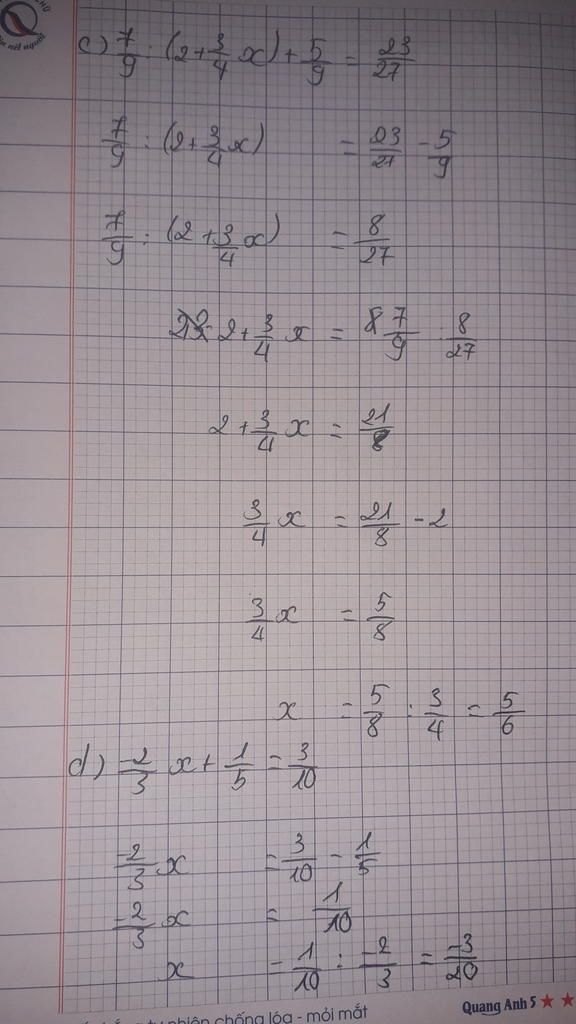 CHỮ
nét người
c) 7/9 : (2 + 3/4 x) + 5/9 = 23/27
7/9 : (2 + 3/4 x) = 23/27 - 5/9
7/9 : (2 + 3/4 x) = 8/27
2 + 3/4 x = 7/9 8/27
2 + 3/4 x = 21/8
3/4 x = 21/8 - 2
3/4 x = 5/8
x = 5/8 : 3/4 = 5/6
d) -2/3 x + 1/5 = 3/10
-2/3 x = 3/10 - 1/5
-2/3 x = 1/10
x = 1/10 : -2/3 = -3/20
tự nhiên chống lóa - mỏi mắt
Quang Anh 5 ★ ★